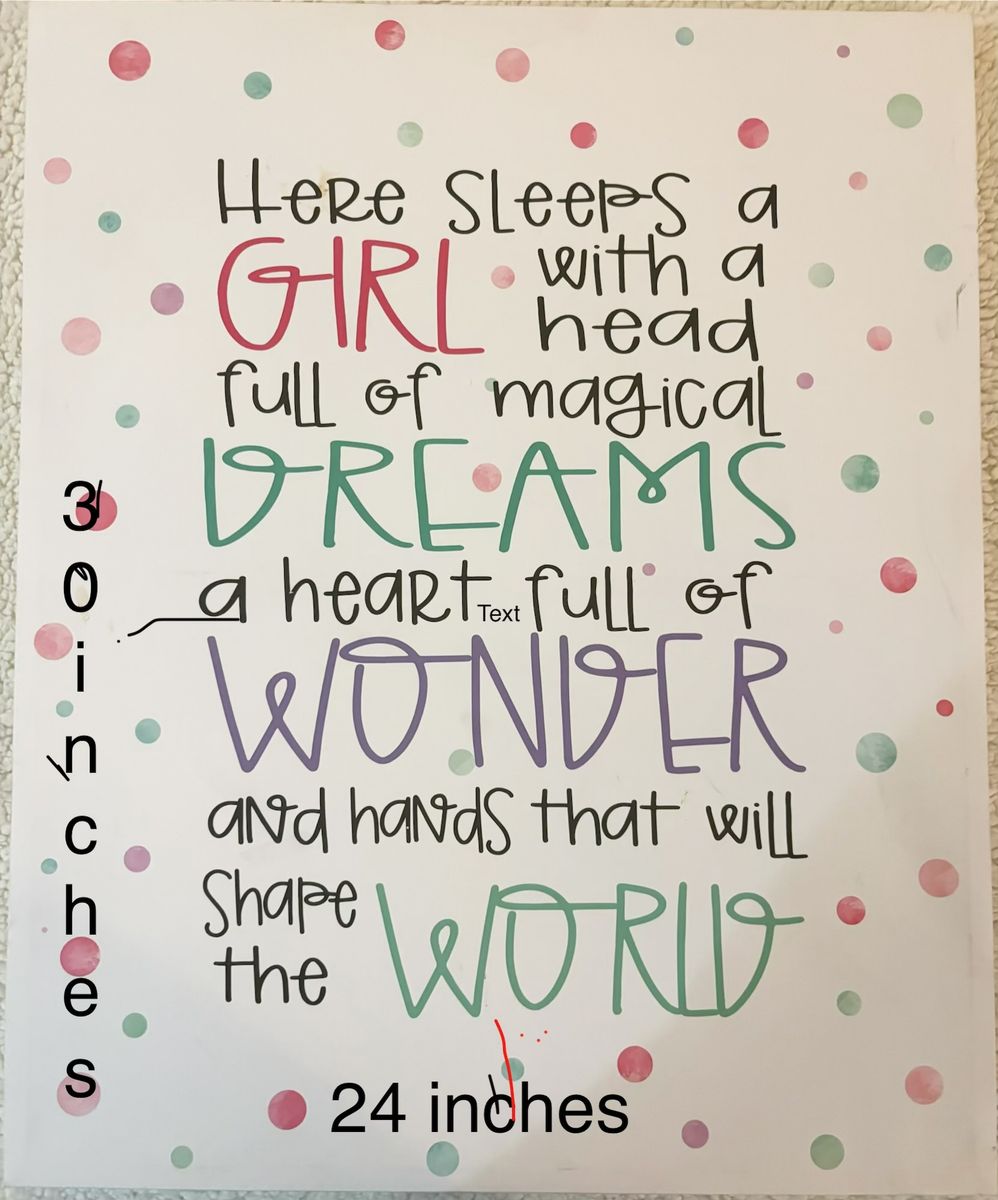 Here sleeps a
GIRL with a
head
full of magical
DREAMS
a heart full of
Text
WONDER
and hands that will
shape
the WORLD
30 inches
24 inches